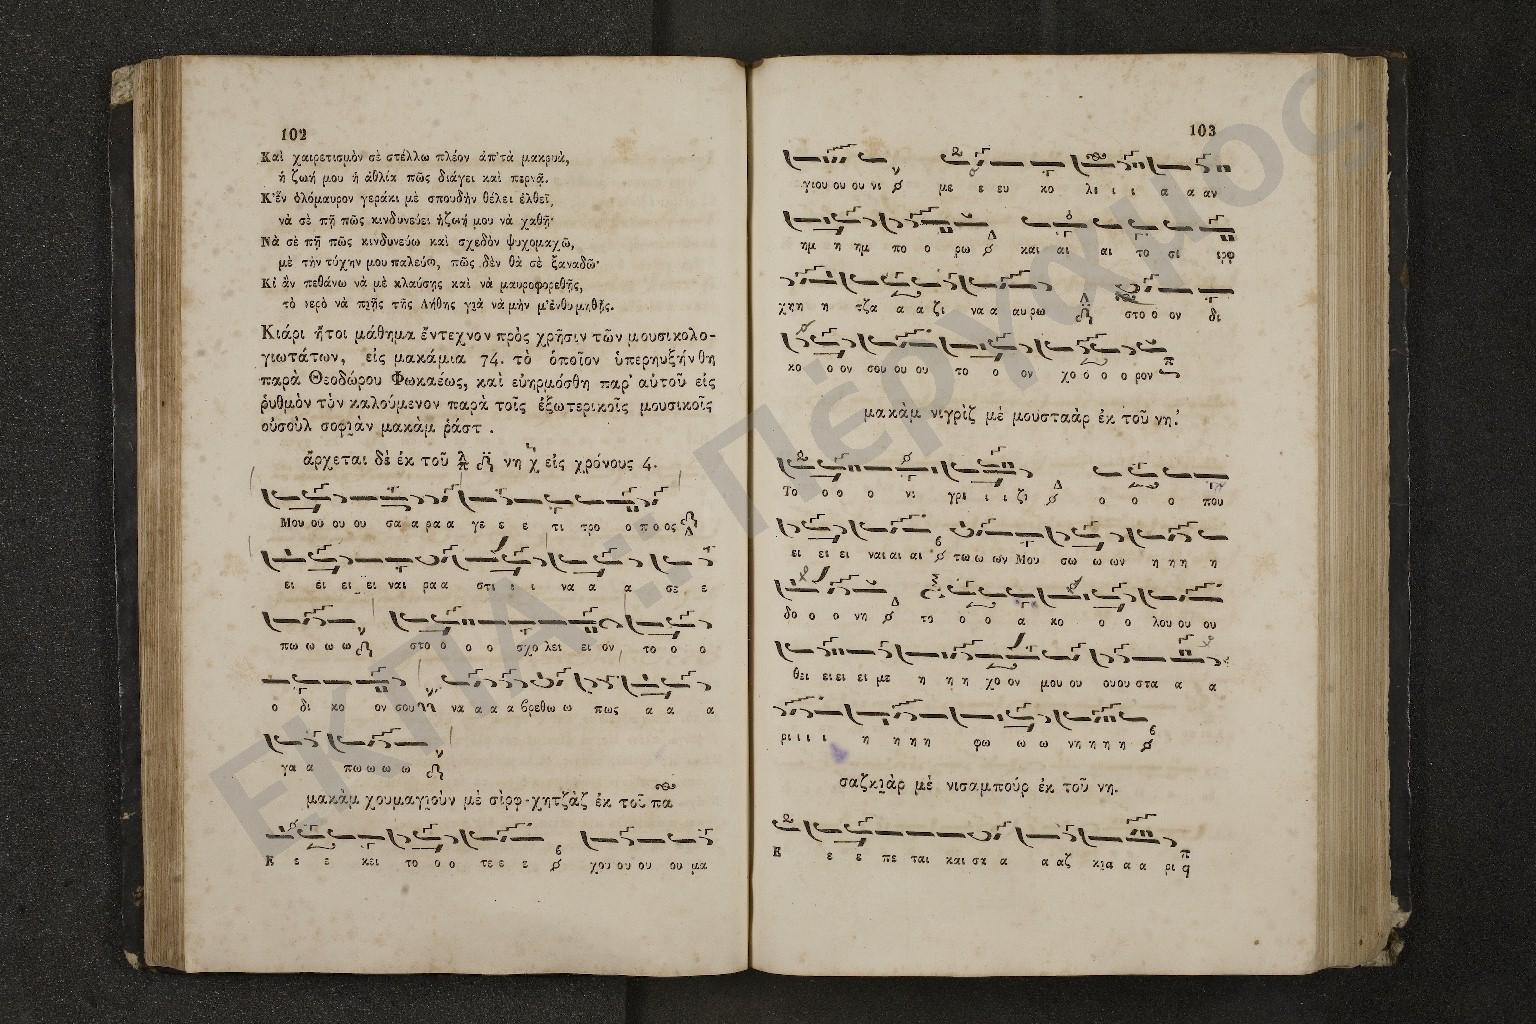 102
Καὶ χαιρετισμὸν σὲ στέλλω πλέον ἀπ' τὰ μακρυὰ,
ἡ ζωή μου ἡ ἀθλία πῶς διάγει καὶ περνᾷ.
Κ' ἓν ὁλόμαυρον γεράκι μὲ σπουδὴν θέλει ἐλθεῖ,
νὰ σὲ πῇ πῶς κινδυνεύει ἡ ζωή μου νὰ χαθῇ·
Νὰ σὲ πῇ πῶς κινδυνεύω καὶ σχεδὸν ψυχομαχῶ,
μὲ τὴν τύχην μου παλεύω, πῶς δὲν θὰ σὲ ξαναδῶ·
Κι ἂν πεθάνω νὰ μὲ κλαύσῃς καὶ νὰ μαυροφορεθῇς,
τὸ νερὸ νὰ πιῇς τῆς Λήθης γιὰ νὰ μὴν μ' ἐνθυμηθῇς.
Κιάρι ἤτοι μάθημα ἔντεχνον πρὸς χρῆσιν τῶν μουσικολο-
γιωτάτων, εἰς μακάμια 74. τὸ ὁποῖον ὑπερηυξήνθη
παρὰ Θεοδώρου Φωκαέως, καὶ εὐηρμόσθη παρ' αὐτοῦ εἰς
ῥυθμὸν τὸν καλούμενον παρὰ τοῖς ἐξωτερικοῖς μουσικοῖς
οὐσοὺλ σοφιὰν μακὰμ ῥάστ .
ἄρχεται δὲ ἐκ τοῦ νη εἰς χρόνους 4.
Μου ου ου ου σα α ρα α γε ε ε τι τρο ο π ο ος
ει ει ει ει ναι ρα α στι ι ι να α α σε ε
πω ω ω ω στο ο ο ο σχο λει ει ον το ο ο
ο δι κο ον σου να α α α βρεθω ω πως α α α
γα α πω ω ω ω
μακὰμ χουμαγιοὺν μὲ σὶρφ-χητζὰζ ἐκ τοῦ πα
Ε ε ε κει το ο ο τε ε ε χου ου ου ου μα
103
γιου ου ου νι με ε ευ κο λι ι ι α α αν
ημ η ημ πο ο ρω και αι αι το σι ιρφ
χηη η τζα α α ζι να α αυρω στο ο ον δι
κο ο ον σου ου ου το ο ον χο ο ο ο ρον
μακὰμ νιγρὶζ μὲ μουσταὰρ ἐκ τοῦ νη.
Το ο ο ο νι γρι ι ι ζι ο ο ο που
ει ει ει ναι αι αι τω ω ων Μου σω ω ων η η η η
δο ο ο νη το ο ο α κο ο ο λου ου ου
θει ει ει ει με η η η χο ον μου ου ου ου στα α α
ρι ι ι ι η η η η φω ω ω νη η η η
σαζκιὰρ μὲ νισαμποὺρ ἐκ τοῦ νη.
Ε ε ε πε ται και σα α α αζ κια α α ρι
ΕΚΠΑ :: Πέργαμος